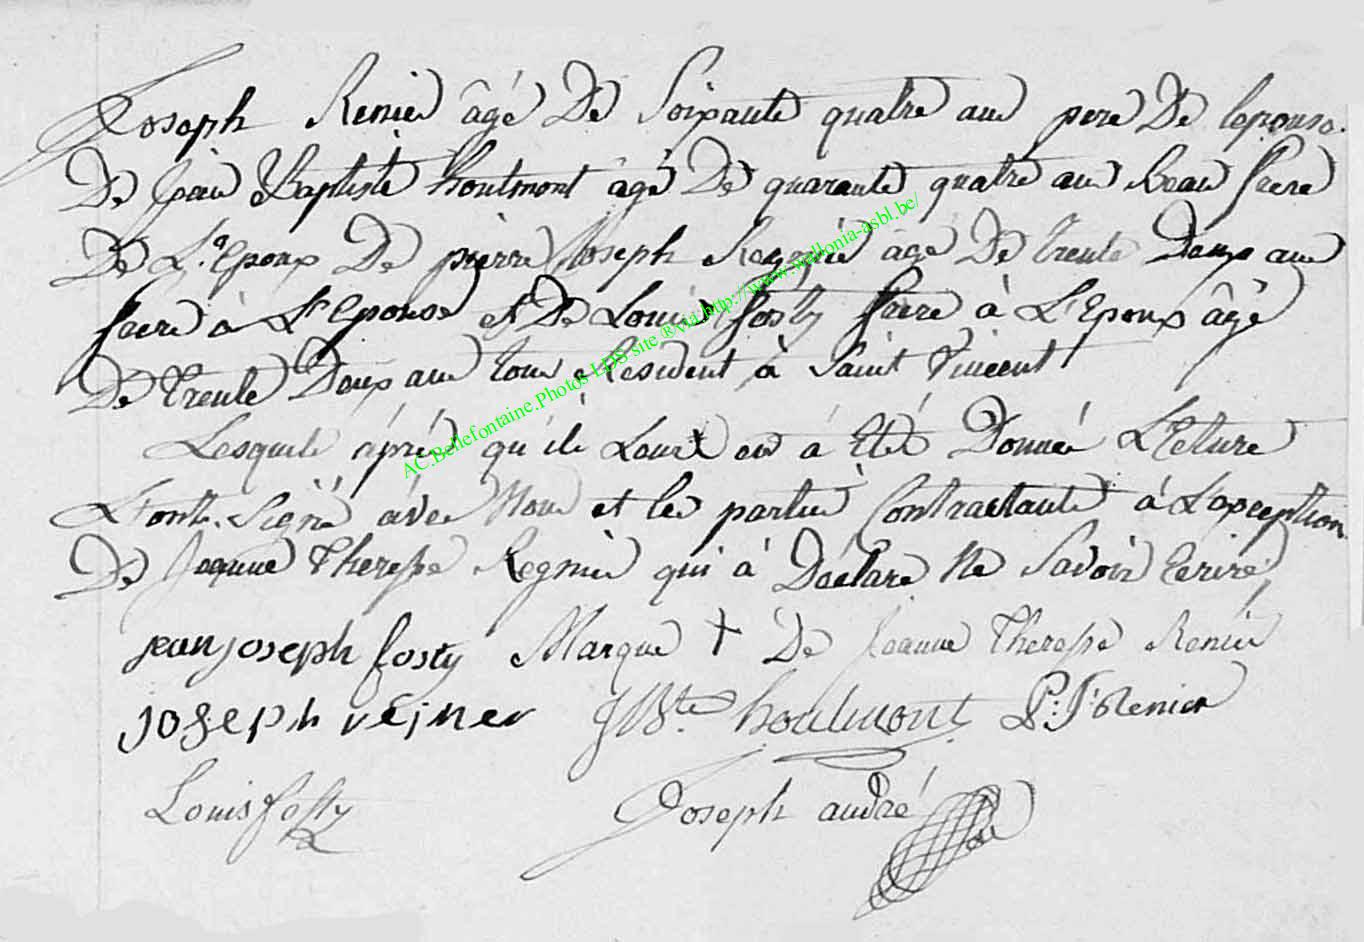 Joseph Renier âgé De Soixante quatre ans pere De lepouse.
De Jean Baptiste houlmont âgé De quarante quatre ans Beau frere
De L'Epoux De pierre Joseph Regnié âgé De trente Deux ans
frere à L'Epouse et De Louis fosty frere à L'Epoux âgé
De trente Deux ans tous Resident à Saint Vincent
Lesquels áprés qu'ils Leurs en á Eté Donneé L'Eture
L'ont Signé ávec Nous et les partie Contractante á L'exception
De Jeanne Theresse Regnier qui á Déclare Ne Savoir Ecrire,
jean joseph fosty Marque + De Jeanne Theresse Renier
joseph rejner JBte houlmont P: J: Renier
Louis fosty Joseph andré
AC.Bellefontaine.Photos LDS site ® via http://www.wallonia-asbl.be/